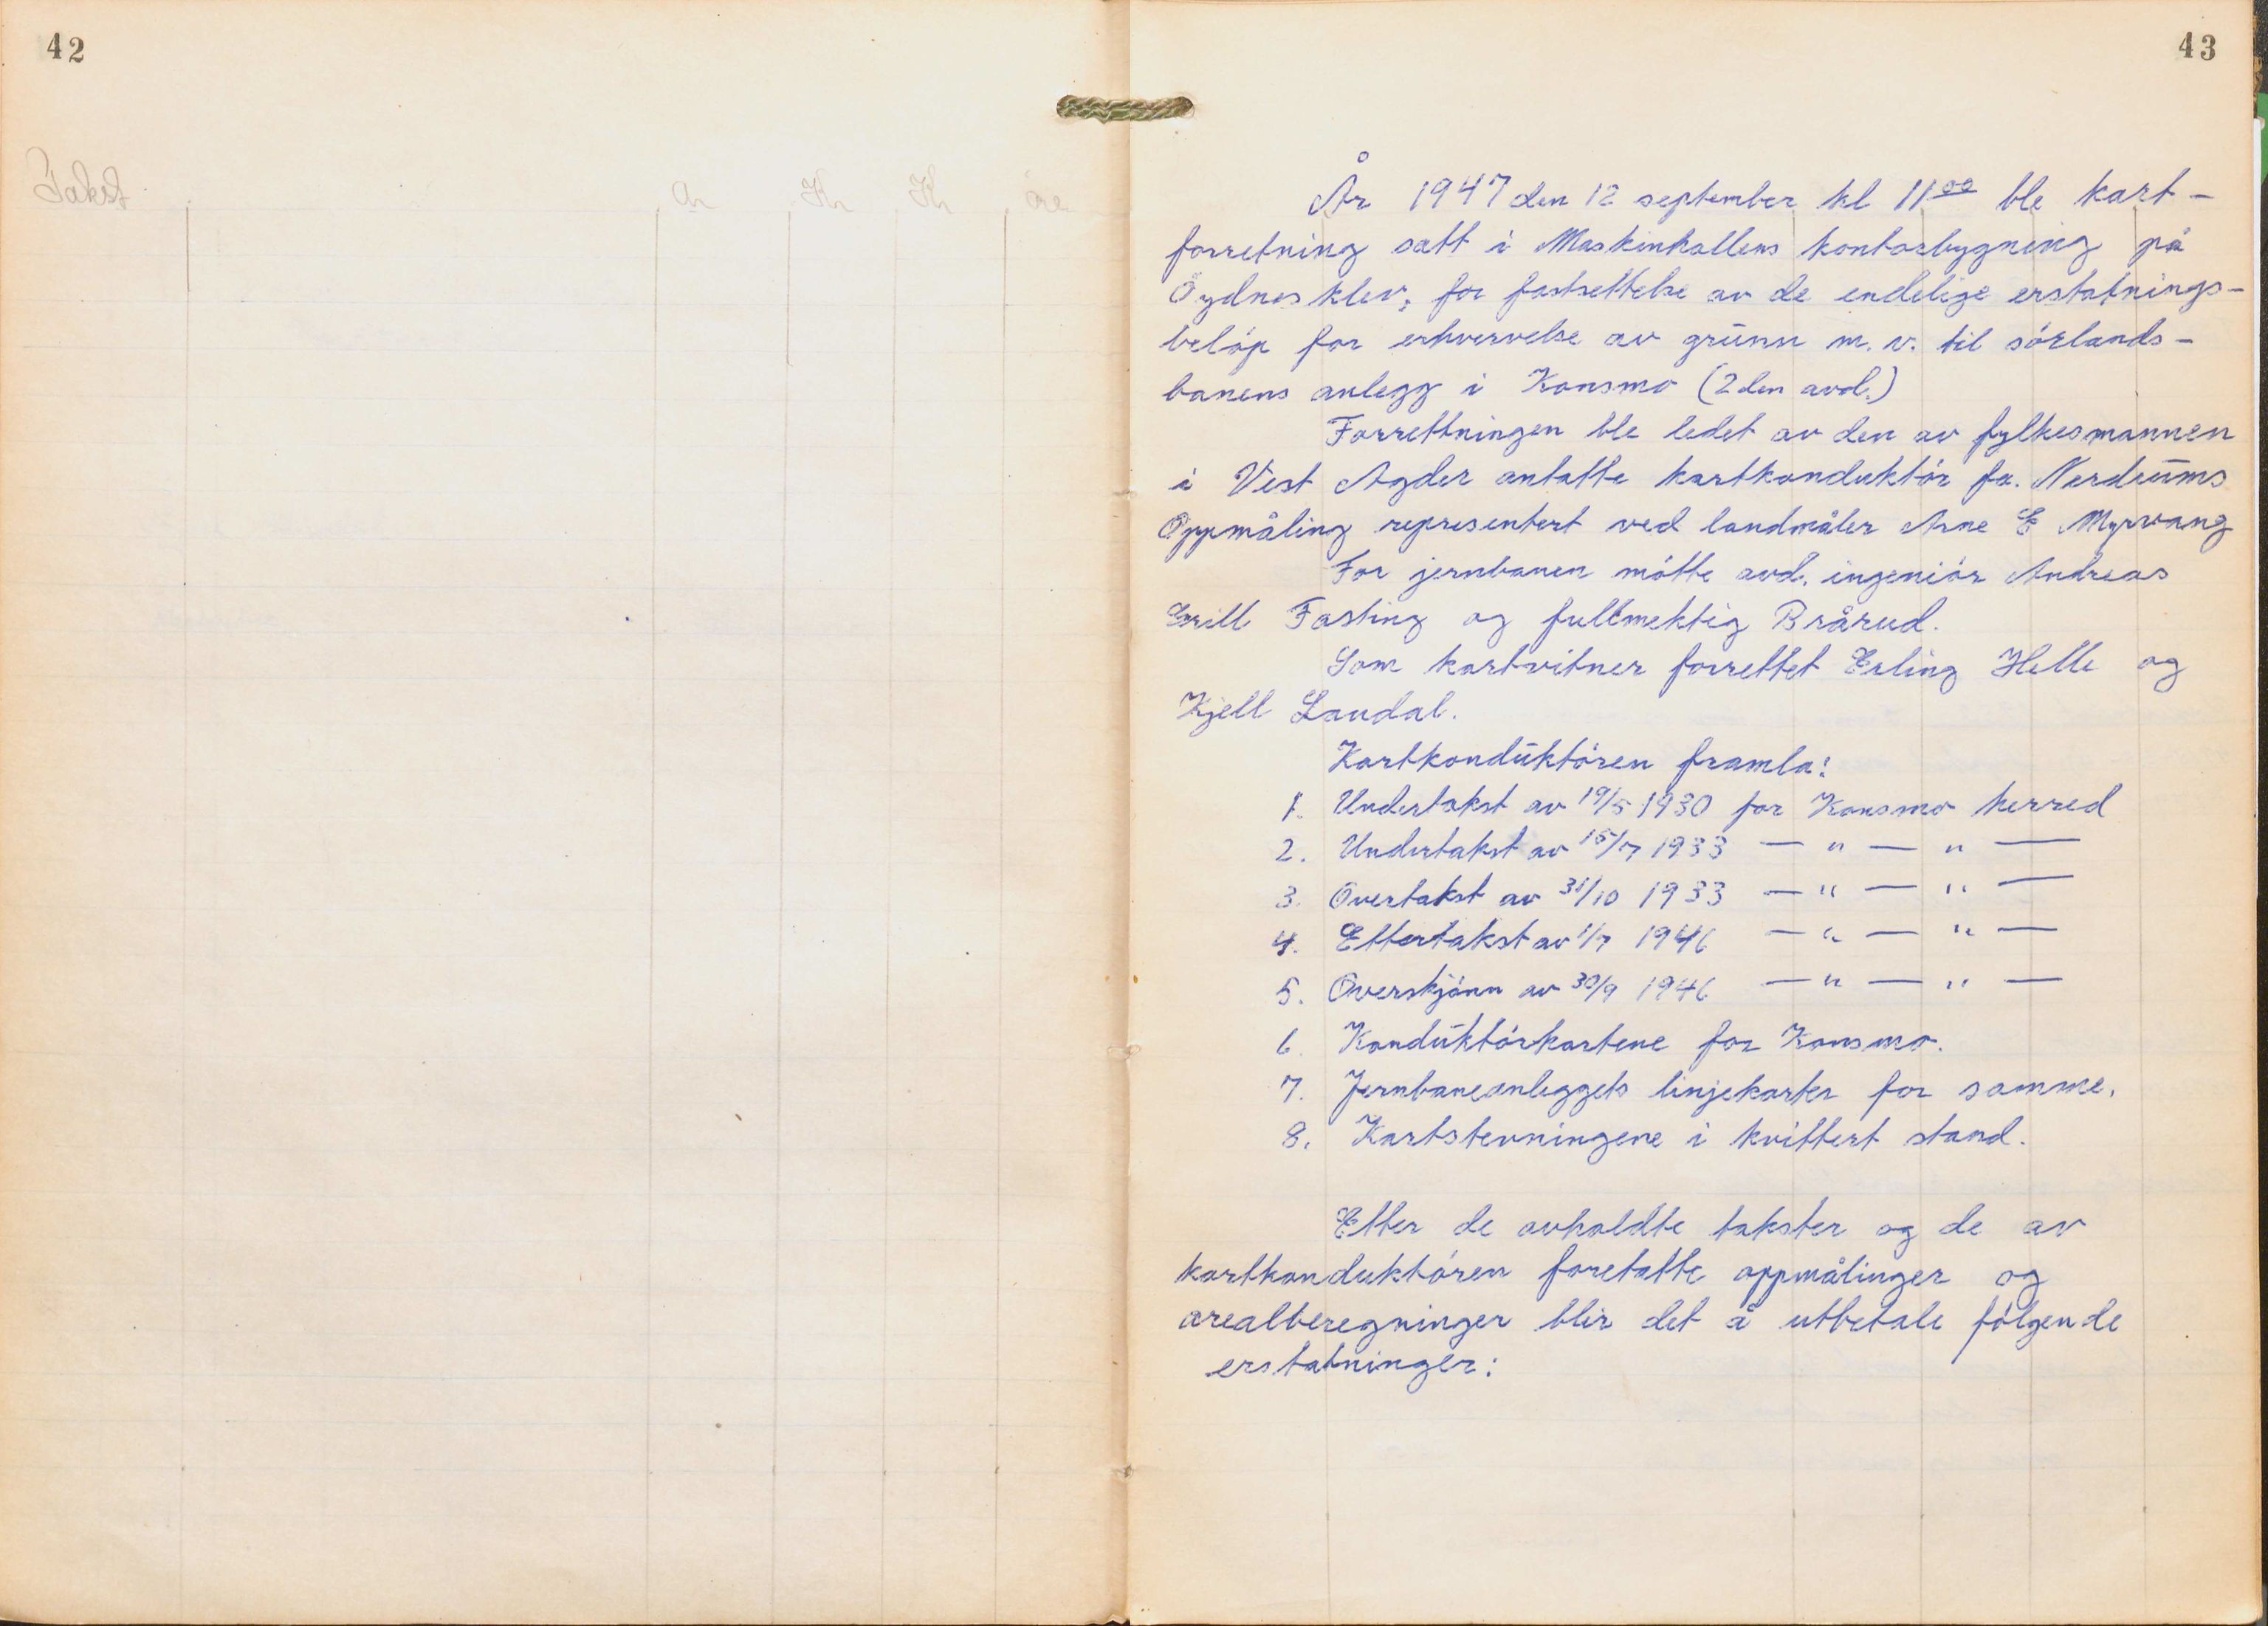 42
Takst ar Kr Kr öre
43
År 1947 den 12 september kl 11⁰⁰ ble kart-
forretning satt i Maskinhallens kontorbygning på
Öydnesklev, for fastsettelse av de endelige erstatnings-
belöp for erhvervelse av grunn m.v. til sörlands-
banens anlegg i Konsmo (2den avd.)
Forrettningen ble ledet av den av fylkesmannen
i Vest Agder antatte kartkonduktör fa. Nerdrums
Oppmåling representert ved landmåler Arne E Myrvang
For jernbanen mötte avd. ingeniör Andreas
Grill Fasting og fullmektig Brårud.
Som kartvitner forrettet Erling Helle og
Kjell Laudal.
Kartkonduktören framla:
1. Undertakst av 19/5 1930 for Konsmo herred
2. Undertakst av 15/7 1933 — " — " —
3. Overtakst av 31/10 1933 — " — " —
4. Ettertakst av 1/7 1946 — " — " —
5. Overskjönn av 30/9 1946 — " — " —
6. Konduktörkartene for Konsmo.
7. Jernbaneanleggets linjekarter for samme.
8. Kartstevningene i kvittert stand.
Etter de avholdte takster og de av
kartkonduktören foretatte oppmålinger og
arealberegninger blir det å utbetale fölgende
erstatninger: